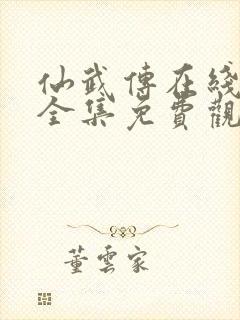 仙武傳在綫
全集免費觀
董雲家